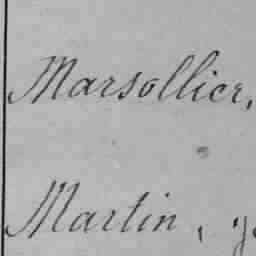 Marsollier,
Martin,